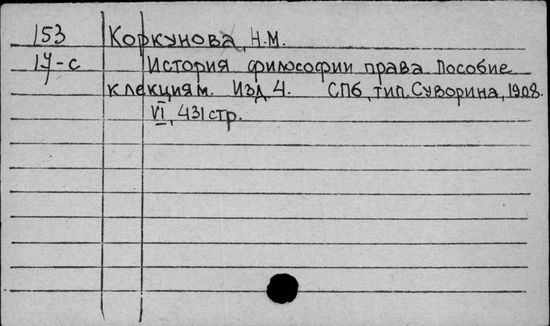 153 Коркунова, Н.М.
17-с История философии права. Пособие
к лекциям. Изд 4. СПб, тип. Суворина, 1908.
VI, 431 стр.